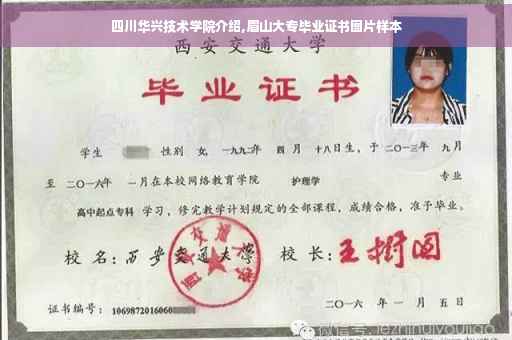 四川华兴技术学院介绍,眉山大专毕业证书图片样本
西安交通大学
毕业证书
学生 性别 女, 一九九二年 四 月 十八日生, 于 二〇一三年 九 月
至 二〇一六年 一 月在本校网络教育学院 护理学 专业
高中起点专科 学习, 修完教学计划规定的全部课程, 成绩合格, 准予毕业。
校 名: 西安交通大学 校 长: 王树国
西安交通大学
证书编号: 1069872016060
二〇一六 年 一 月 五 日
微信号: jiezhinuiyoujiao